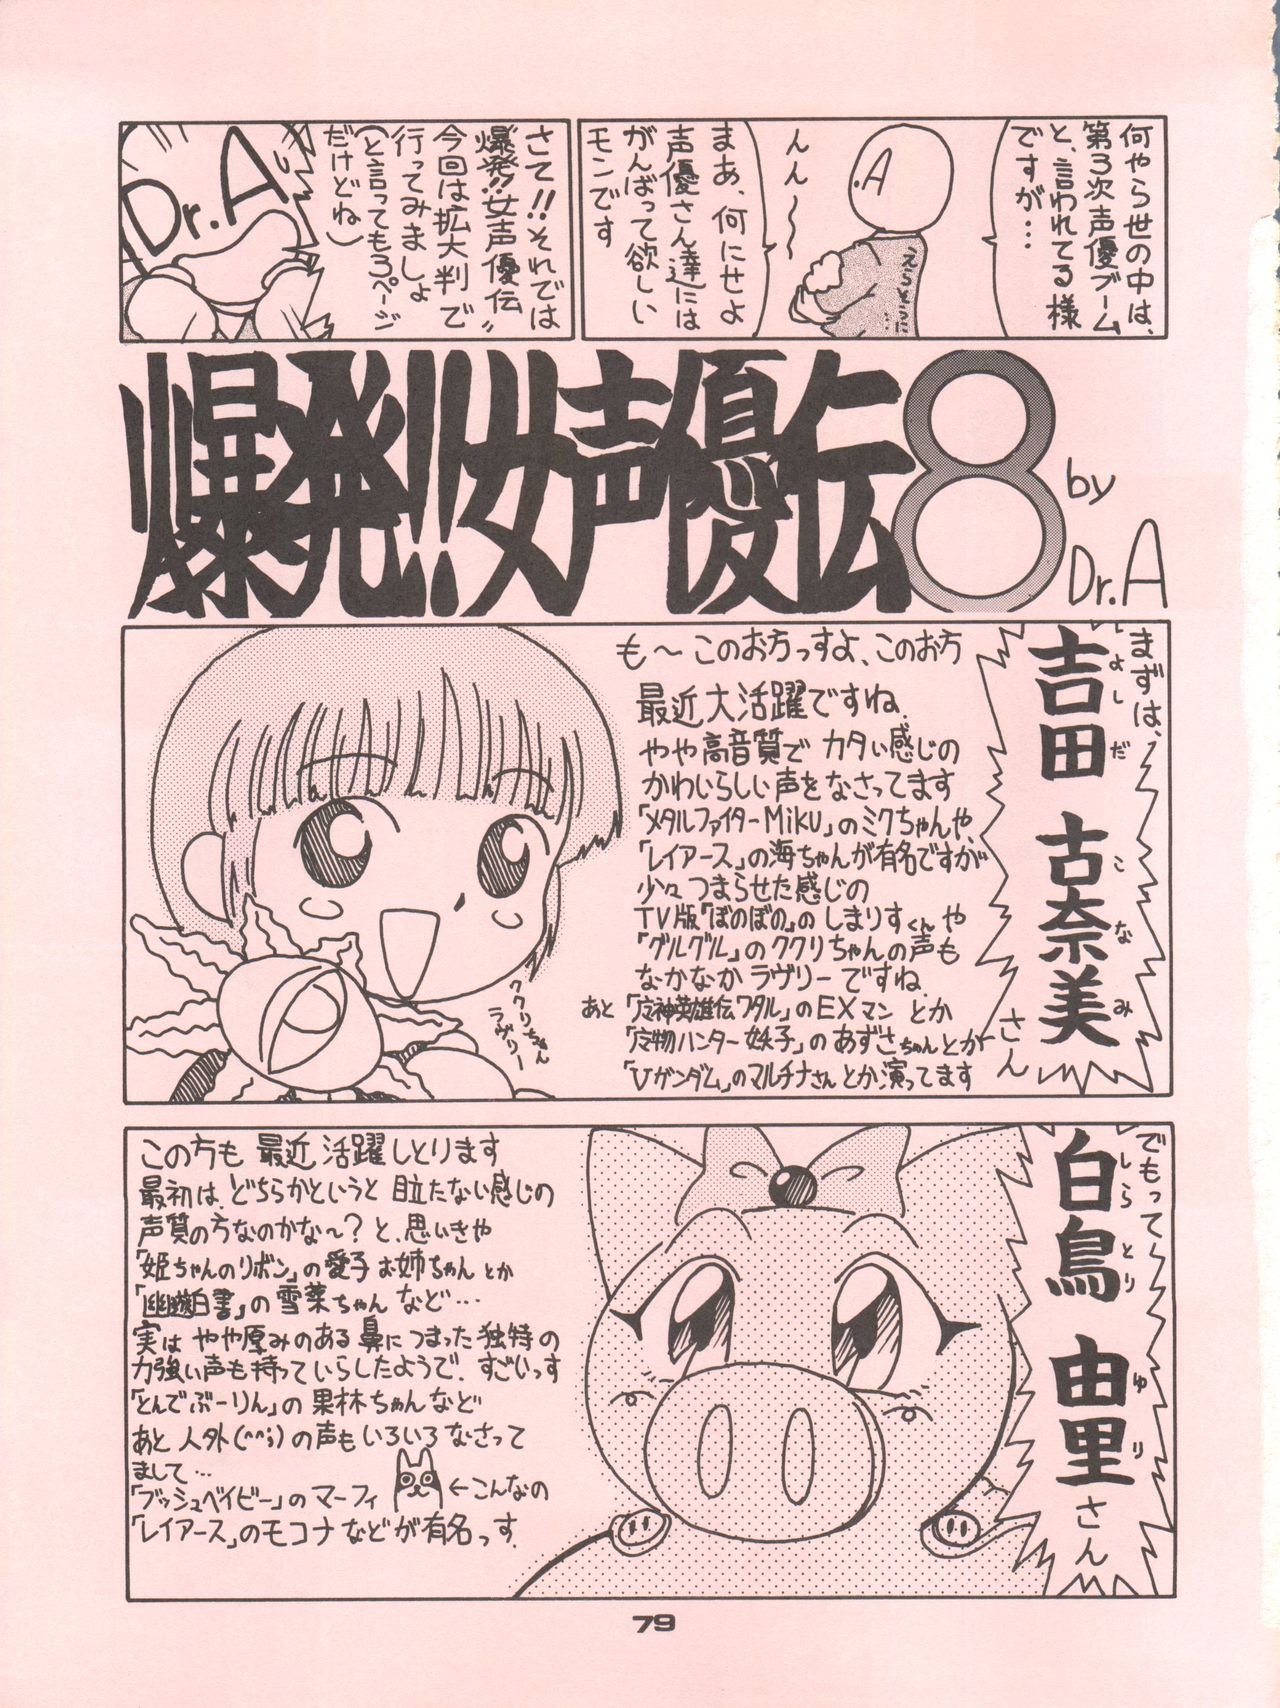 何やら世の中は、
第3次声優ブーム
と、言われてる様
ですが…
.A
えらそうに
んん〜〜
まあ、何にせよ
声優さん達には
がんばって欲しい
モンです
さて!!それでは
"爆発!!女声優伝"
今回は拡大判で
行ってみましょ
(と言っても3ページ
だけどね)
Dr.A
爆発!!女声優伝8
by
Dr.A
まずは、
吉田 古奈美さん
よしだ こなみ
も〜このお方っすよ、このお方
最近大活躍ですね.
やや高音質でカタい感じの
かわいらしい声をなさってます
「メタルファイターMiKU」のミクちゃんや、
「レイアース」の海ちゃんが有名ですが
少々つまらせた感じの
TV版『ぼのぼの』のしまりすくんや
「グルグル」のククリちゃんの声も
なかなかラヴリーですね.
あと「魔神英雄伝ワタル」のEXマンとか
「魔物ハンター妖子」のあずさちゃんとか
「Vガンダム」のマルチナさんとか演ってます
ククリちゃん
ラヴリー
でもって
白鳥 由里さん
しらとり ゆり
この方も最近活躍しとります
最初はどちらかというと目立たない感じの
声質の方なのかな〜?と、思いきや
「姫ちゃんのリボン」の愛子お姉ちゃんとか
「幽遊白書」の雪菜ちゃんなど…
実はやや厚みのある鼻につまった独特の
力強い声も持っていらしたようで、すごいっす
「とんでぶーりん」の果林ちゃんなど
あと人外(^^;)の声もいろいろなさって
まして…
「ブッシュベイビー」のマーフィ ←こんなの
「レイアース」のモコナなどが有名っす
79